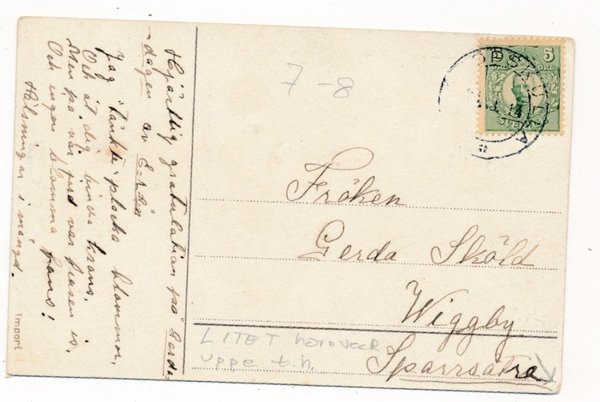 Hjärtlig gratulation på Gerda-
dagen av Gerda
Jag tänkt plocka blommor,
Och åt dig binda krans.
Men på vår jord var basen is,
Och ingen blomma fans!
Hälsningar i mängd.
7-8
5
UPSALA
Fröken
Gerda Sköld
Wiggby
Sparrsätra
LITET hörnveck
uppe t.h.
Import